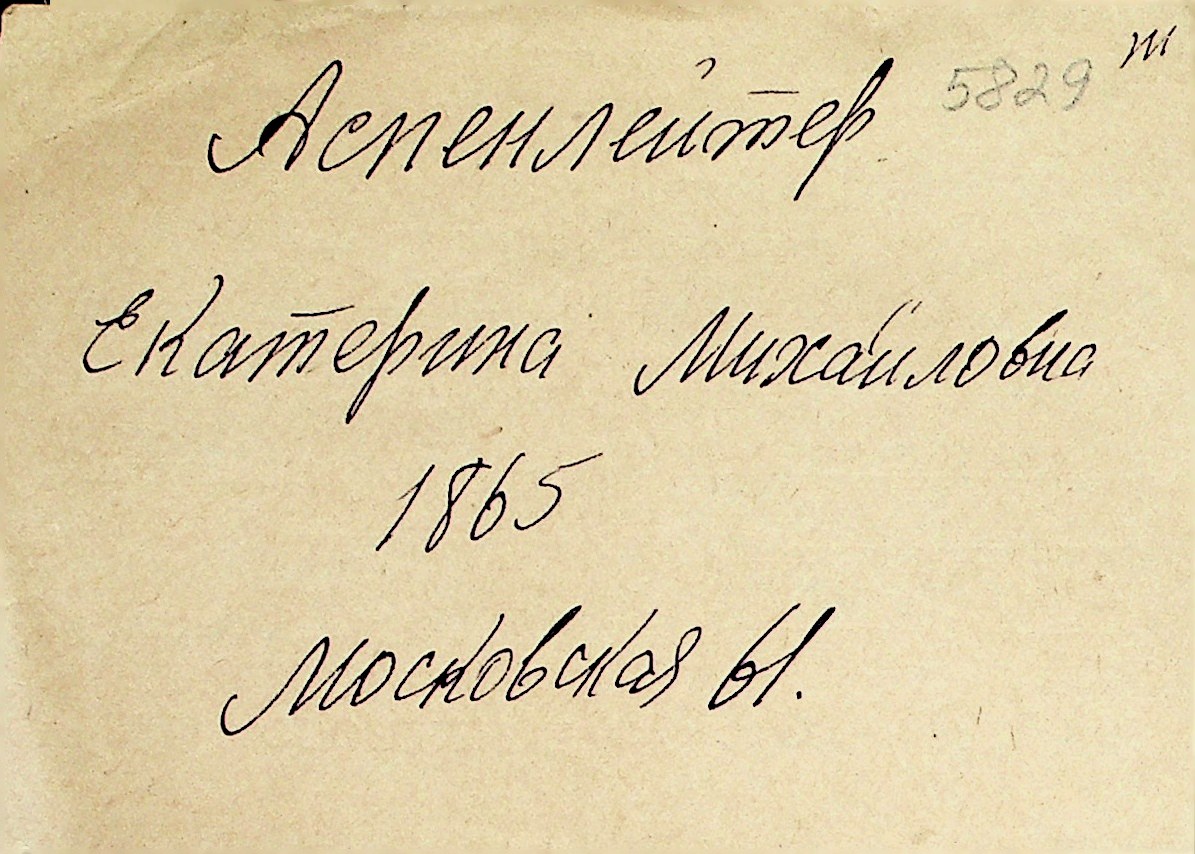 5829 т
Аспенлейтер
Екатерина Михайловна
1865
Московская 61.